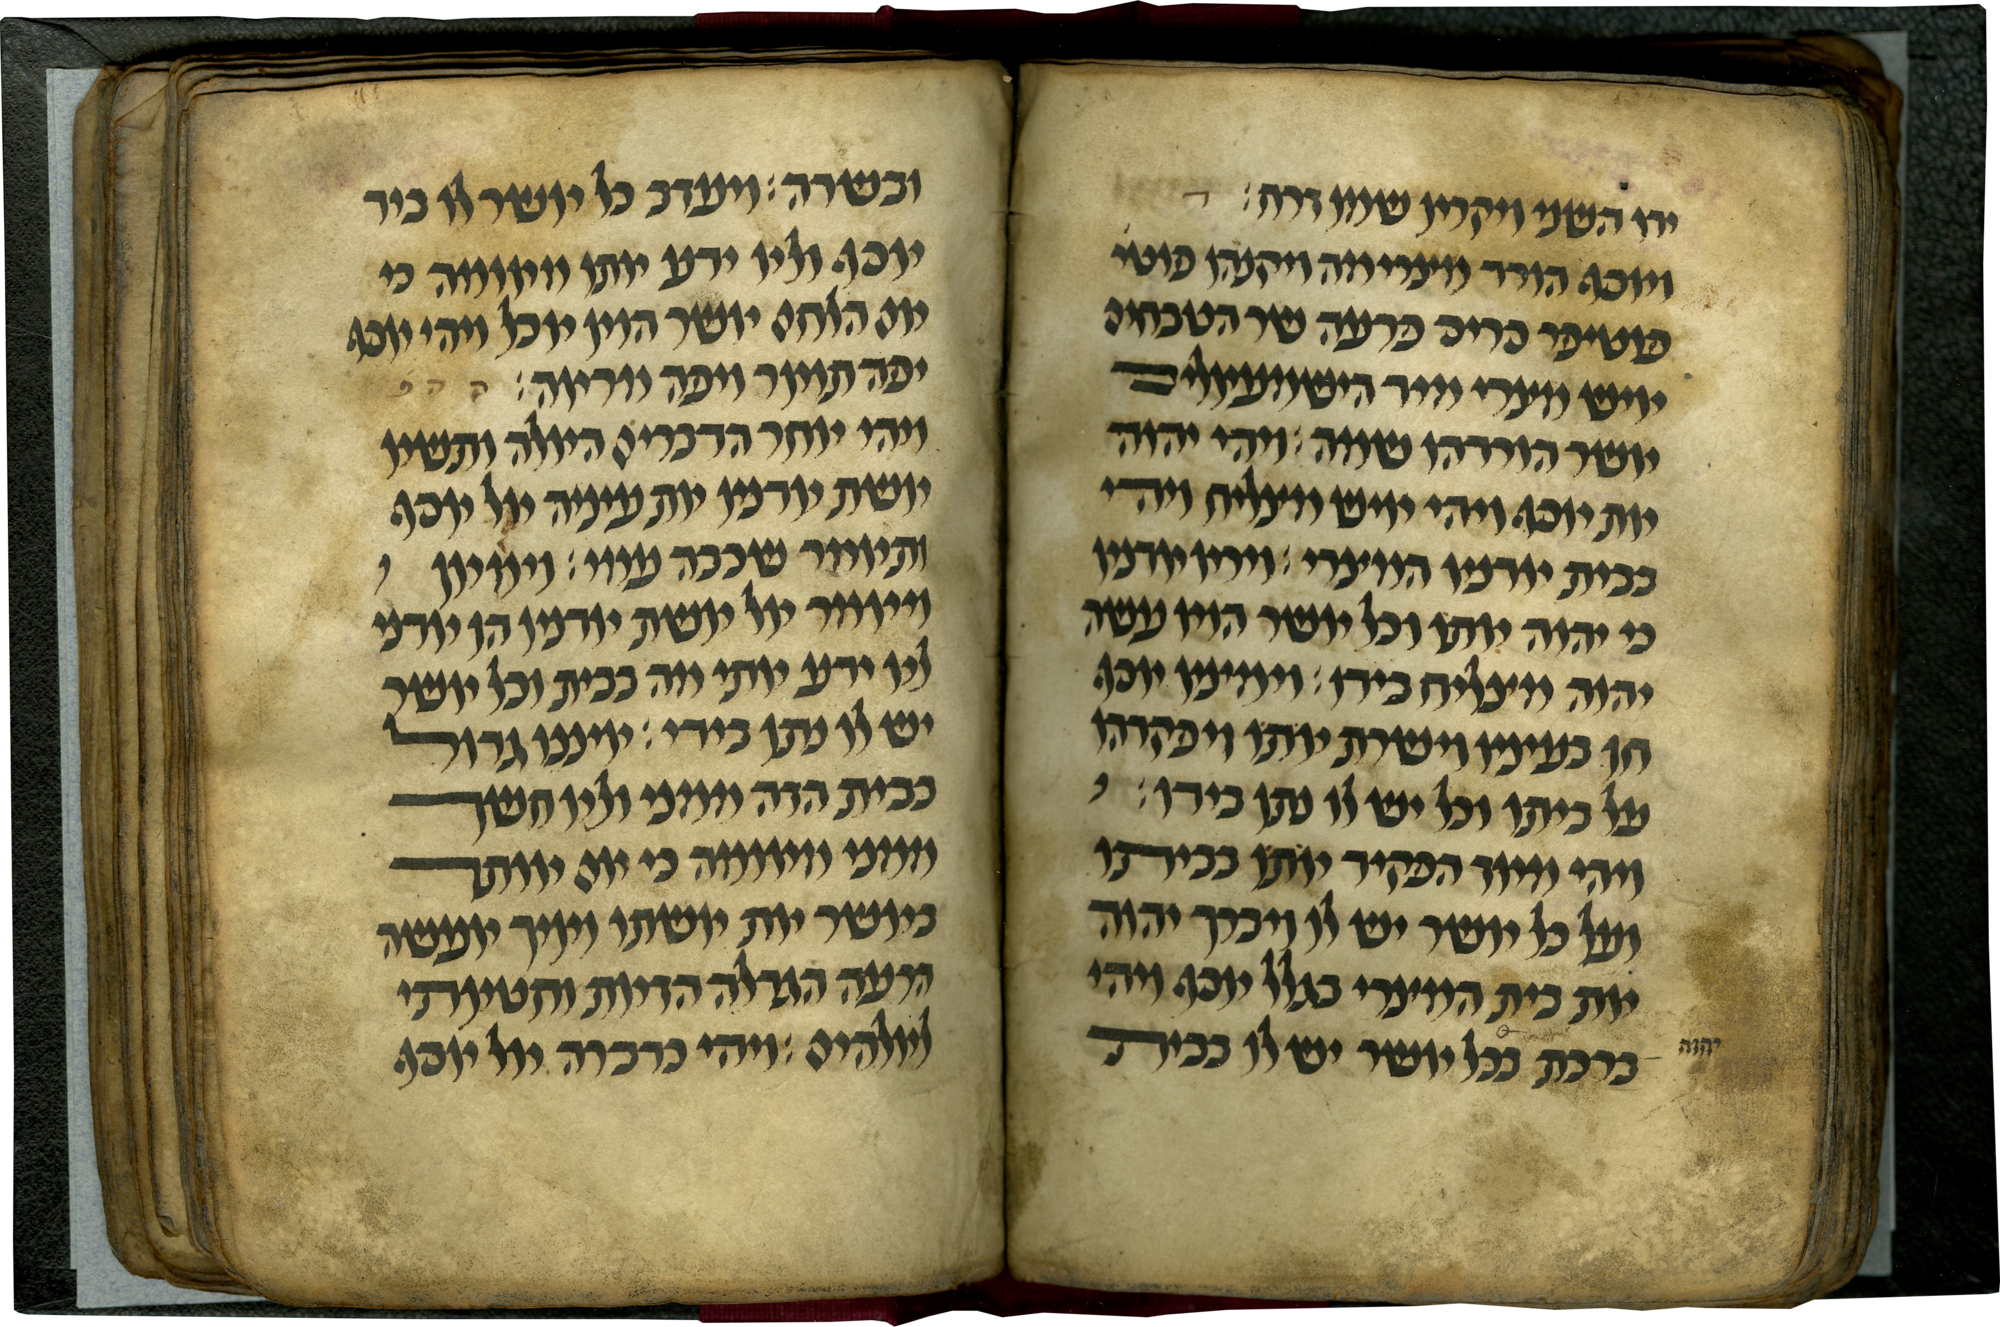 ידו השני ויקרא שמו זרח:
ויוסף הורד מצרימה ויקנהו פוטי
פוטיפר סריס פרעה שר הטבחים
איש מצרי מיד הישמעאלים
אשר הורדהו שמה: ויהי יהוה
את יוסף ויהי איש מצליח ויהי
בבית אדניו המצרי: וירא אדניו
כי יהוה אתו וכל אשר הוא עשה
יהוה מצליח בידו: וימצא יוסף
חן בעיניו וישרת אתו ויפקדהו
על ביתו וכל יש לו נתן בידו:
ויהי מאז הפקיד אתו בביתו
ועל כל אשר יש לו ויברך יהוה
את בית המצרי בגלל יוסף ויהי
ברכת בכל אשר יש לו בבית
יהוה
ובשדה: ויעזב כל אשר לו ביד
יוסף ולא ידע אתו מאומה כי
אם הלחם אשר הוא אכל ויהי יוסף
יפה תאר ויפה מראה:
ויהי אחר הדברים האלה ותשא
אשת אדניו את עיניה אל יוסף
ותאמר שכבה עמי: וימאן
ויאמר אל אשת אדניו הן אדני
לא ידע אתי מה בבית וכל אשר
יש לו נתן בידי: איננו גדול
בבית הזה ממני ולא חשך
ממני מאומה כי אם אותך
באשר את אשתו ואיך אעשה
הרעה הגדלה הזאת וחטאתי
לאלהים: ויהי כדברה אל יוסף